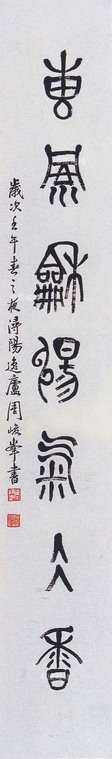 惠風龢暢氣人香
歲次壬午春之夜潯陽逸廬周峻峯書